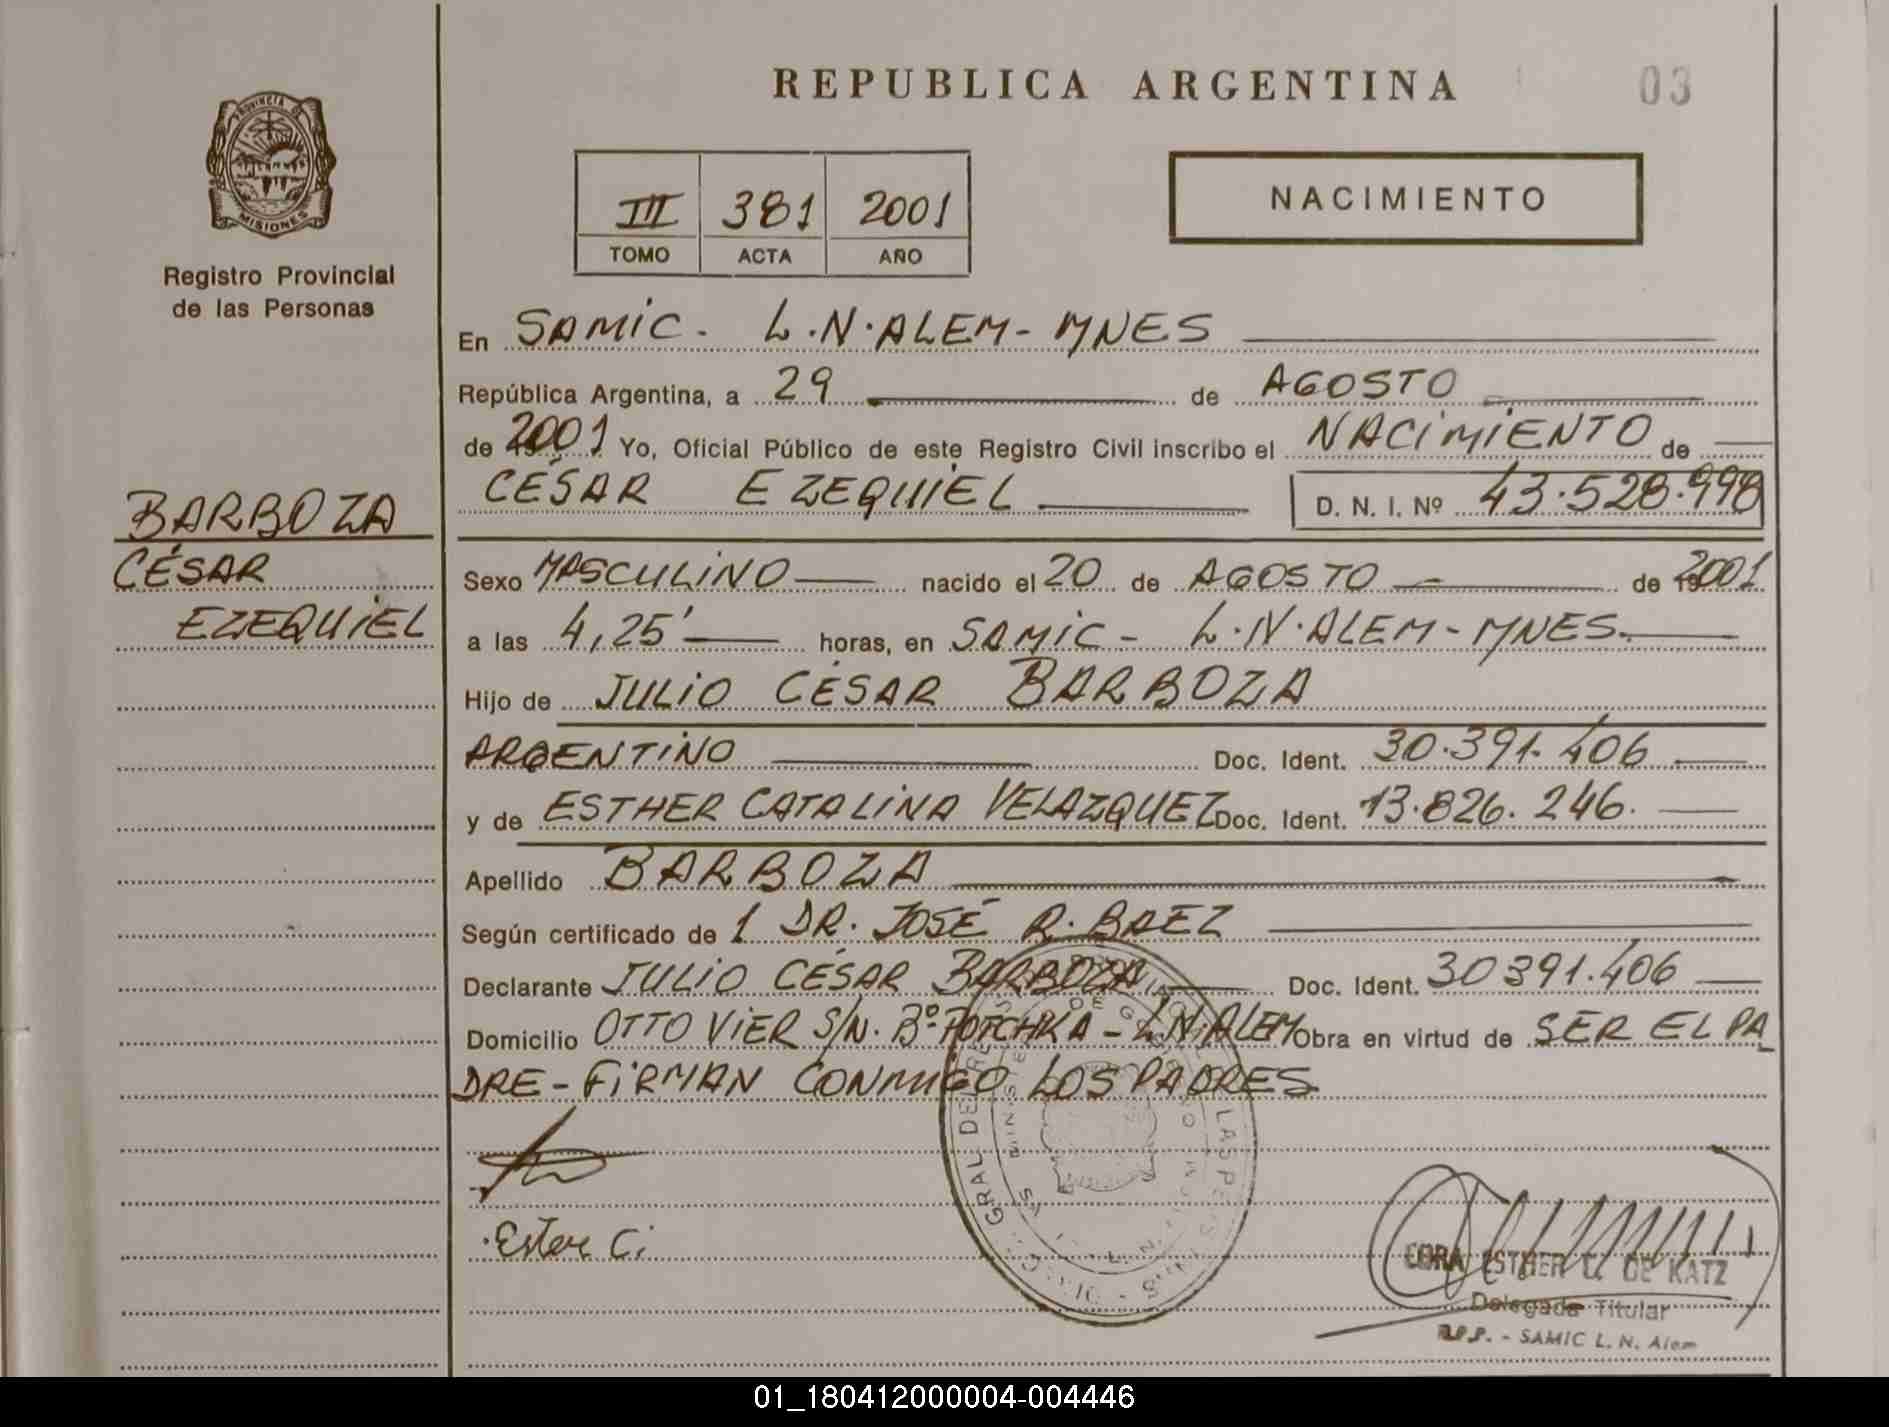 REPUBLICA ARGENTINA
03
PROVINCIA DE
MISIONES
Registro Provincial
de las Personas
III 381 2001
TOMO ACTA AÑO
NACIMIENTO
En SAMIC - L.N.ALEM - MNES
República Argentina, a 29 de AGOSTO
de 2001 Yo, Oficial Público de este Registro Civil inscribo el NACIMIENTO de
CÉSAR EZEQUIEL D. N. I. Nº 43.528.998
BARBOZA
CÉSAR
EZEQUIEL
Sexo MASCULINO nacido el 20 de AGOSTO de 2001
a las 4,25' horas, en SAMIC - L.N.ALEM - MNES.
Hijo de JULIO CÉSAR BARBOZA
ARGENTINO Doc. Ident. 30.391.406
y de ESTHER CATALINA VELAZQUEZ Doc. Ident. 13.826.246.
Apellido BARBOZA
Según certificado de 1 DR. JOSÉ R. BAEZ
Declarante JULIO CÉSAR BARBOZA Doc. Ident. 30391.406
Domicilio OTTO VIER S/N. Bº POTCHKA - L.N.ALEM Obra en virtud de SER EL PA_
DRE - FIRMAN CONMIGO LOS PADRES
Ester C.
ESTHER DE KATZ
Delegada Titular
R.P.P. - SAMIC L. N. Alem
01_180412000004-004446